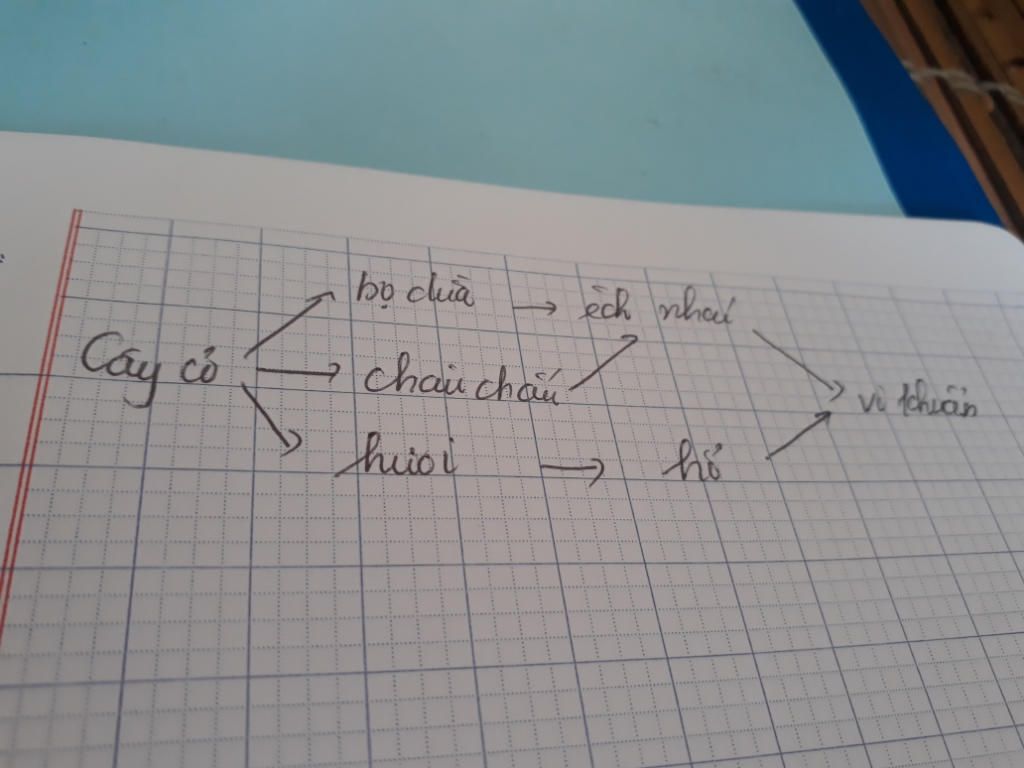 bọ dừa → ếch nhái
Cây cỏ → châu chấu → vi khuẩn
hươi → hổ